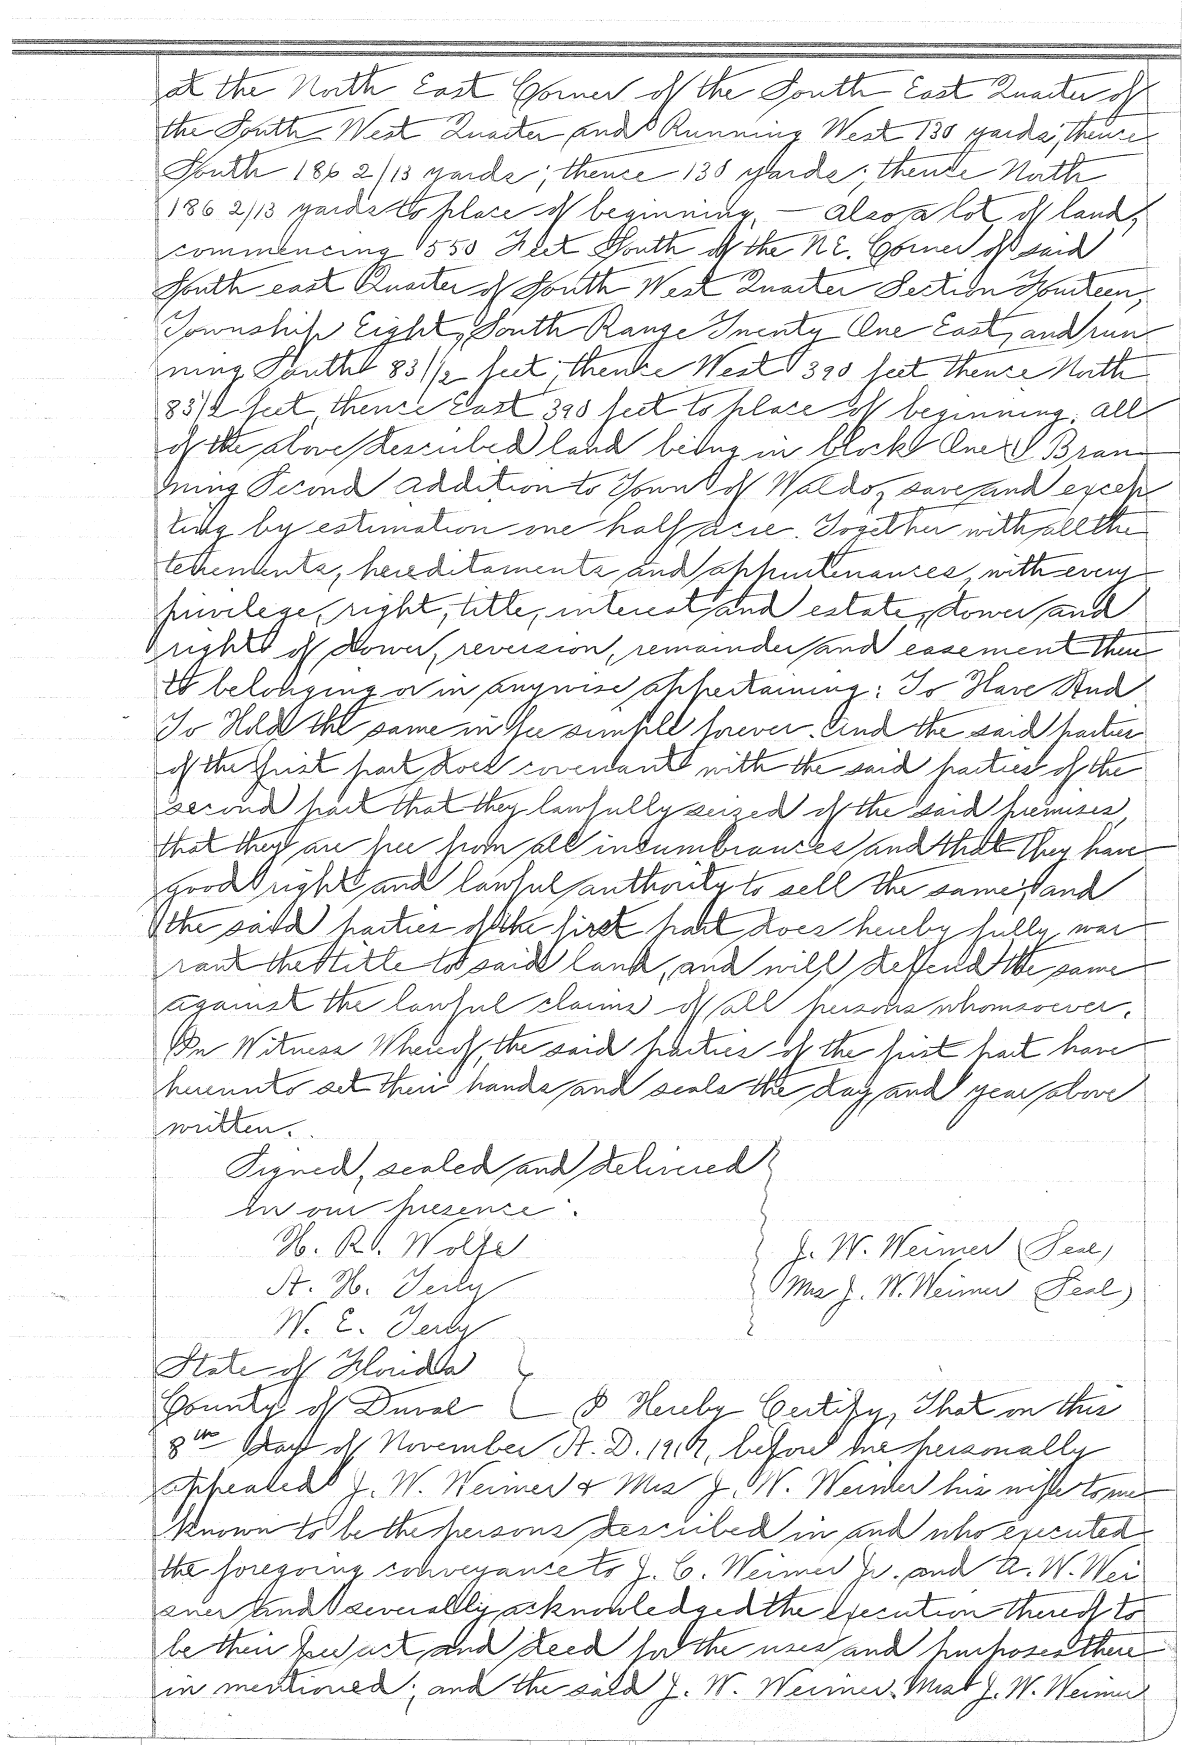 at the North East Corner of the South East Quarter of
the South West Quarter and Running West 130 yards; thence
South 186 2/13 yards; thence 130 yards; thence North
186 2/13 yards to place of beginning, — Also a lot of land,
commencing 550 Feet South of the N.E. Corner of said
South east Quarter of South West Quarter Section Fourteen,
Township Eight, South Range Twenty One East, and run
ning South 83 1/2 feet; thence West 390 feet thence North
83 1/2 feet, thence East 390 feet to place of beginning. All
of the above described land being in block One Bran
ning Second Addition to Town of Waldo, save and excep
ting by estimation one half acre. Together with all the
tenements, hereditaments and appurtenances, with every
privilege, right, title, interest and estate, dower and
right of dower, reversion, remainder and easement there
to belonging or in anywise appertaining: To Have And
To Hold the same in fee simple forever. And the said parties
of the first part does covenant with the said parties of the
second part that they lawfully seized of the said premises,
that they are free from all incumbrances and that they have
good right and lawful authority to sell the same; and
the said parties of the first part does hereby fully war
rant the title to said land, and will deffend the same
against the lawful claims of all persons whomsoever.
In Witness Whereof, the said parties of the first part have
hereunto set their hands and seals the day and year above
written.
Signed, sealed and delivered
in our presence:
H. R. Wolfe
J. W. Weimer (Seal)
A. H. Terly
Mrs J. W. Weimer (Seal)
W. E. Terly
State of Florida
County of Duval I Hereby Certify, That on this
8th Day of November A. D. 1917, before me personally
appeared J. W. Weimer & Mrs J. W. Weimer his wife to me
known to be the persons described in and who executed
the foregoing conveyance to J. C. Weimer Jr. and A. W. Wei
mer and severally acknowledged the execution thereof to
be their free act and deed for the uses and purposes there
in mentioned; and the said J. W. Weimer, Mrs J. W. Weimer